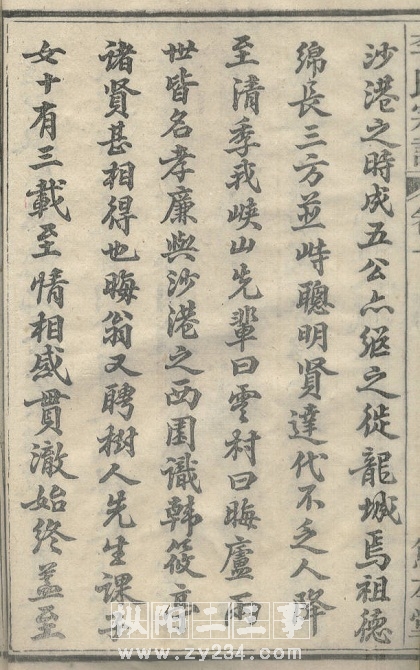 沙港之时成五公亦继之徙龍城焉祖德
綿長三方並峙聰明賢達代不乏人降
至清季我峽山先輩曰雲村曰晦廬兩
世皆名孝廉與沙港之西園識韓筱亭
诸賢甚相得也晦翁又聘樹人先生課
女十有三載至情相感貫澈始終盖至
樅陽二三事
www.zy234.com